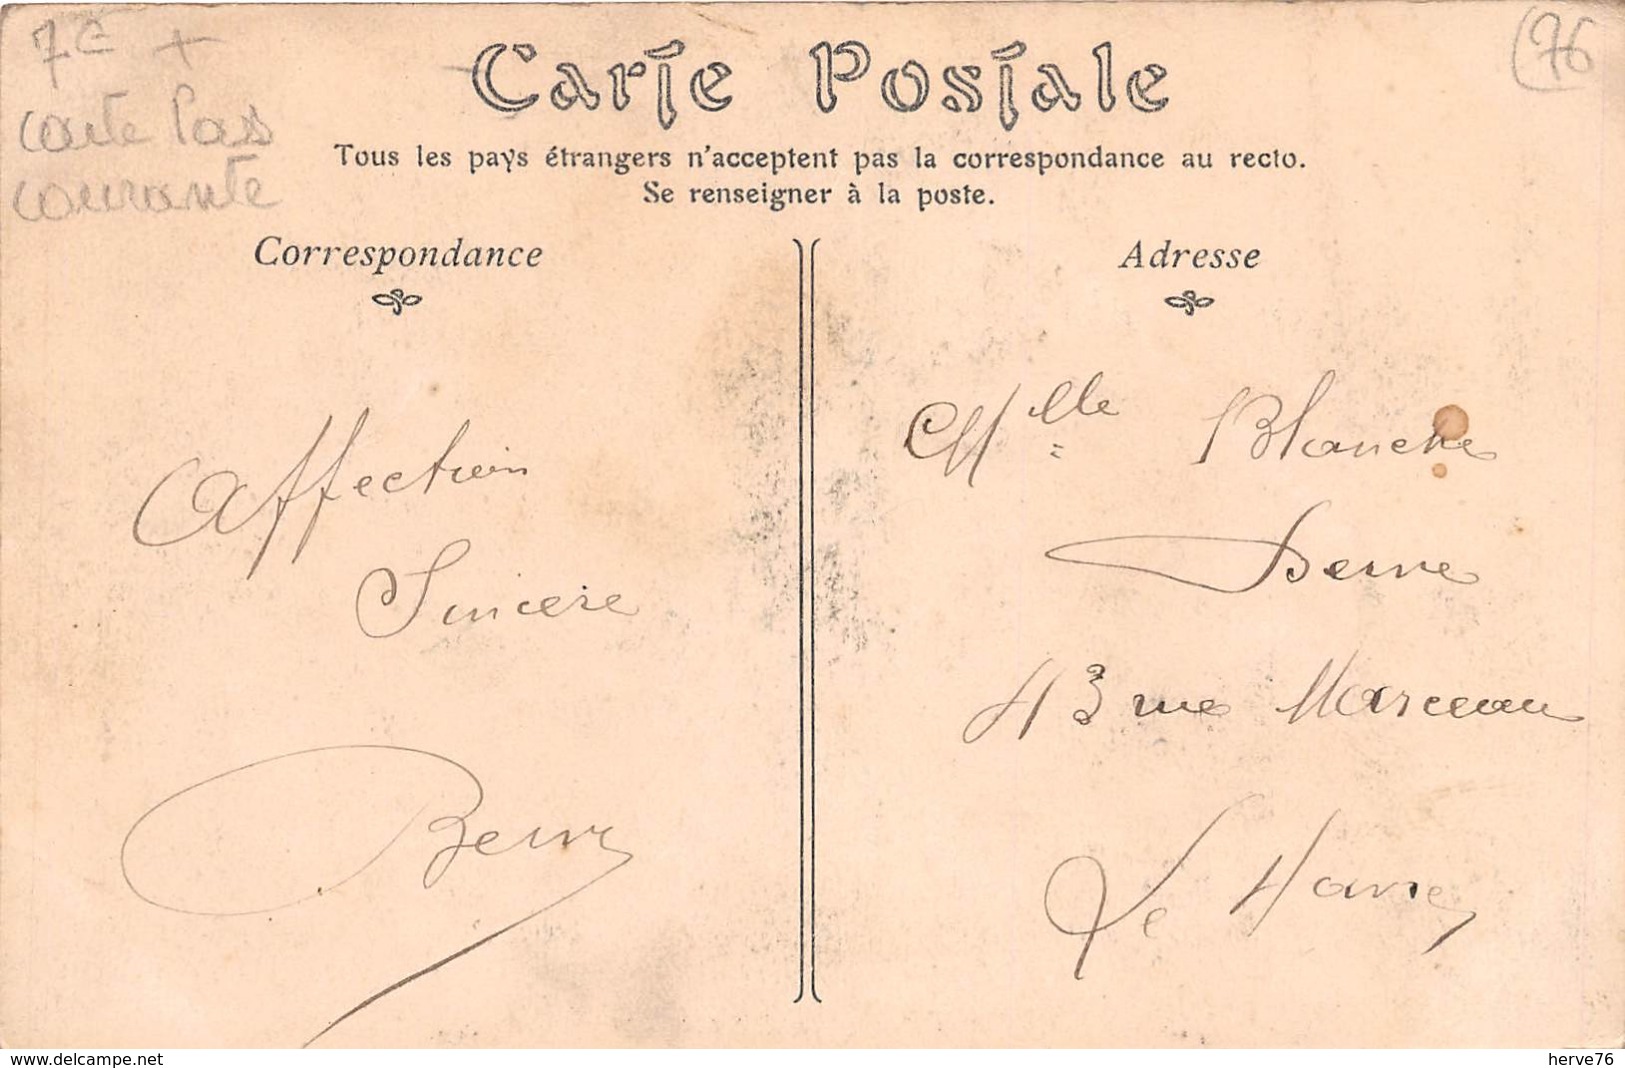 7€ +
carte Pas
courante
(76
Carte Postale
Tous les pays étrangers n'acceptent pas la correspondance au recto.
Se renseigner à la poste.
Correspondance
Affection
Sincère
Adresse
Mlle Blanche
43 rue Marceau
Le Havre
www.delcampe.net
herve76